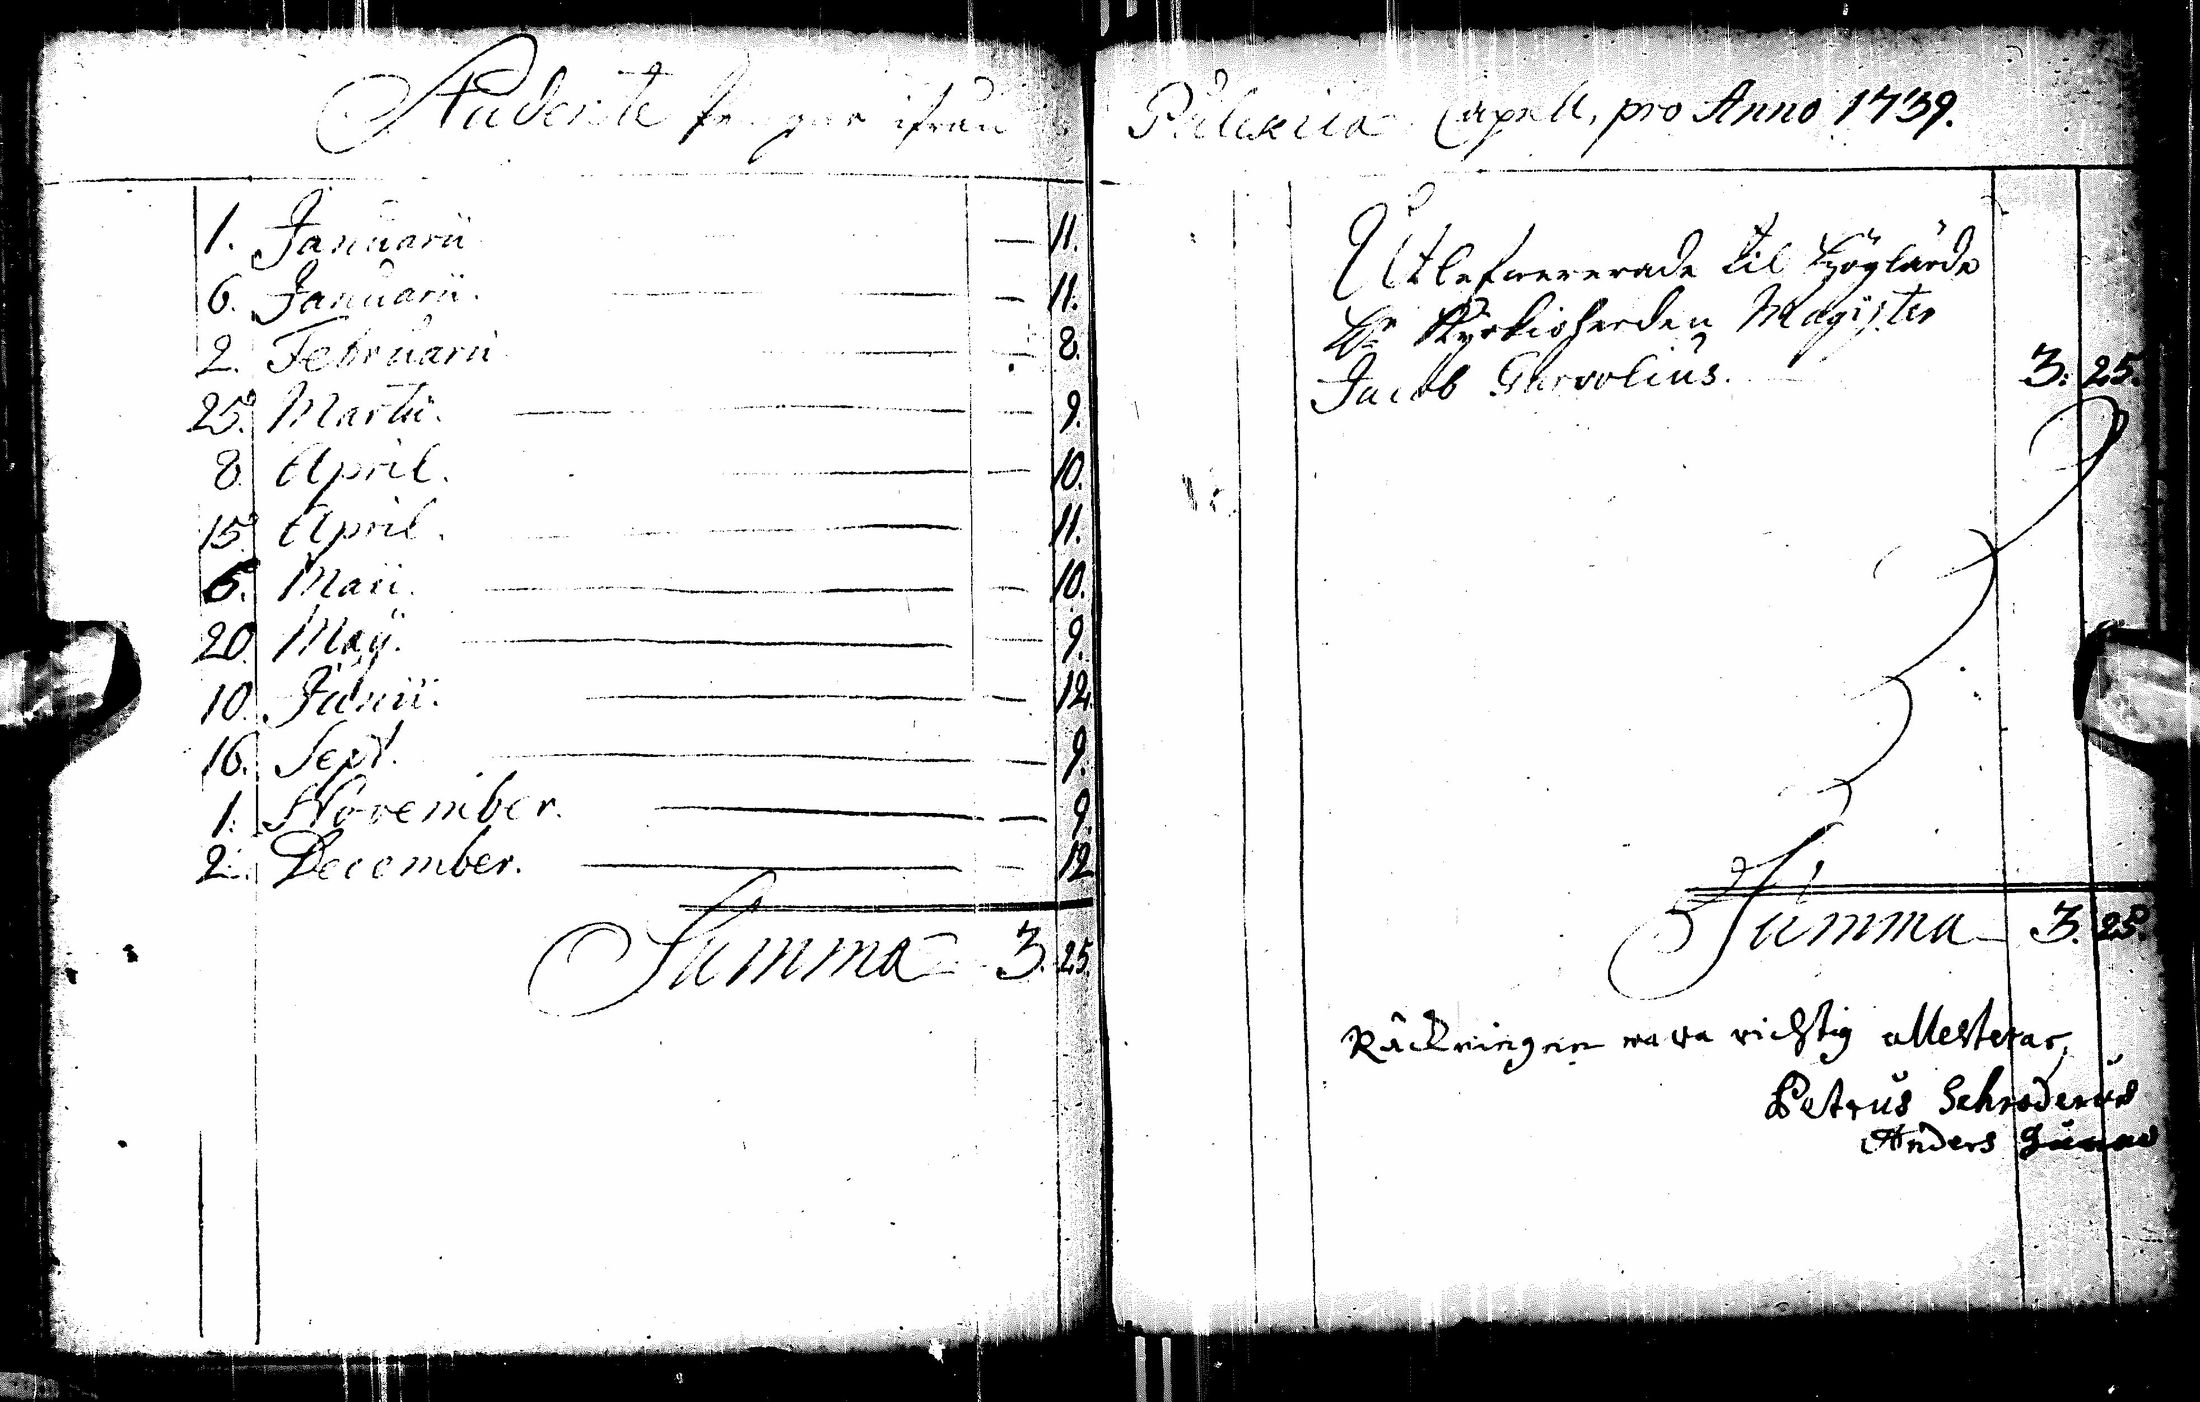 Studente penger ifrån
1. Januarii — 11.
6. Januarii. — 11.
2. Februarii — 8.
25. Martii. — 9.
8. April. — 10.
15. April. — 11.
6. Maii. — 10.
20. Maÿ. — 9.
10. Junii. — 12.
16. Sept. — 9.
1. November. — 9.
2. December. — 12
Summa 3. 25.
Pulkkila Capell, pro Anno 1739.
Utlefwererade til Höglärde
Hr Kyrkioherden Magister
Jacob 3: 25.
Summa 3. 25.
Räckningen wara richtig attesterar,
Petrus Schroderus
Anders